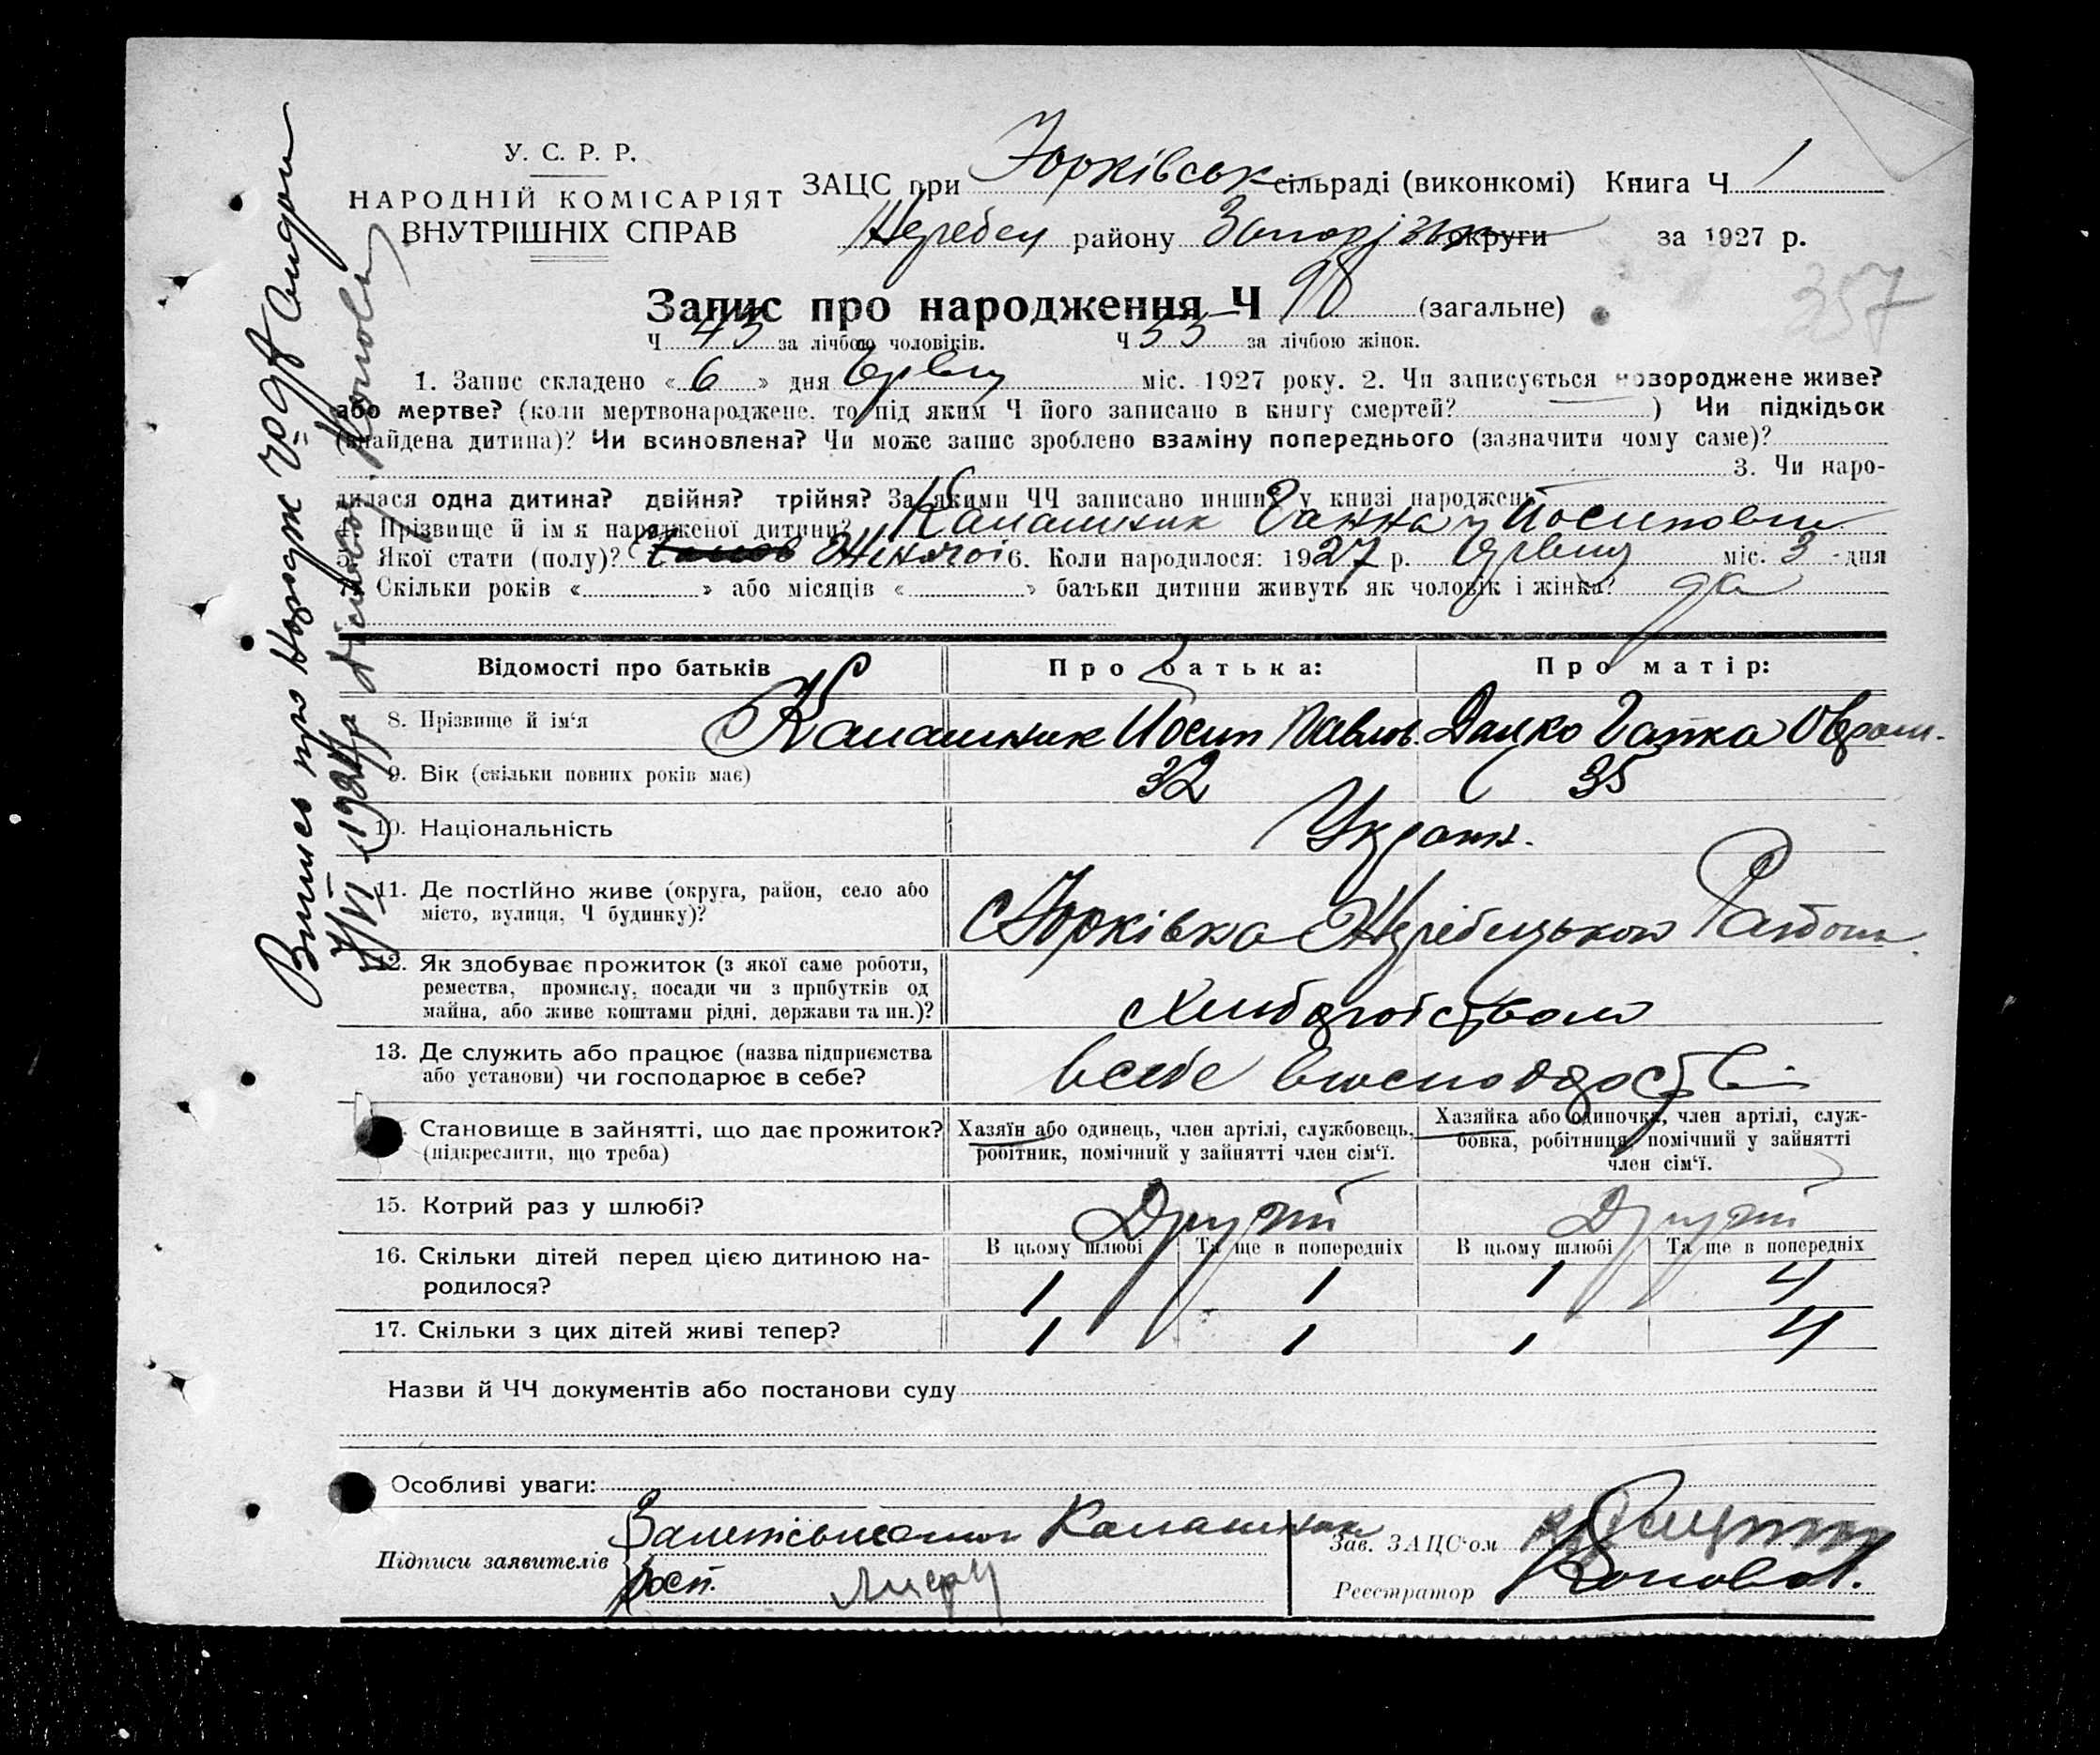 У. С. Р. Р.
НАРОДНІЙ КОМІСАРІЯТ
ВНУТРІШНІХ СПРАВ
ЗАЦС при Юрківськ сільраді (виконкомі) Книга Ч 1
Жеребец району Запоріжж округи за 1927 р.
357
Запис про народження Ч 98 (загальне)
Ч 43 за лічбою чоловіків. Ч 55 за лічбою жінок.
1. Запис складено «6» дня Червц міс. 1927 року. 2. Чи записується новороджене живе?
або мертве? (коли мертвонароджене, то під яким Ч його записано в книгу смертей? ) Чи підкідьок
(знайдена дитина)? Чи всиновлена? Чи може запис зроблено взаміну попереднього (зазначити чому саме)?
3. Чи наро-
дилася одна дитина? двійня? трійня? За якими ЧЧ записано инших у книзі народжень?
4. Прізвище й імя народженої дитини? Калашник Ганна Йосиповна
5. Якої стати (полу)? Жіночої 6. Коли народилося: 1927 р. Червц міс. 3 -дня
7. Скільки років « » або місяців « » батьки дитини живуть як чоловік і жінка? да
Відомості про батьків Про батька: Про матір:
8. Прізвище й ім‘я Калашник Йосип Павлов. Ганка
9. Вік (скільки повних років має) 32 35
10. Національність Украин.
11. Де постІйно живе (округа, район, село або
місто, вулиця, Ч будинку)?
Юрківка Жеребецького Району
12. Як здобуває прожиток (з якої саме роботи,
ремества, промислу, посади чи з прибутків од
майна, або живе коштами рідні, держави та ин.)?
Хлиборобством
13. Де служить або працює (назва підприємства
або установи) чи господарює в себе?
в себе в господарстві
Становище в зайнятті, що дає прожиток?
(підкреслити, що треба)
Хазяїн або одинець, член артілі, службовець,
робітник, помічний у зайнятті член сім‘ї.
Хазяйка або одиночка, член артілі, служ-
бовка, робітниця, помічний у зайнятті
член сім‘ї.
15. Котрий раз у шлюбі? Другий Другий
16. Скільки дітей перед цією дитиною на-
родилося?
В цьому шлюбі Та ще в попередніх В цьому шлюбі Та ще в попередніх
1 1 1 4
17. Скільки з цих дітей живі тепер? 1 1 1 4
Назви й ЧЧ документів або постанови суду
Особливі уваги:
Підписи заявителів Калашник
Зав. ЗАЦС‘ом
Реєстратор
Випись про Народж